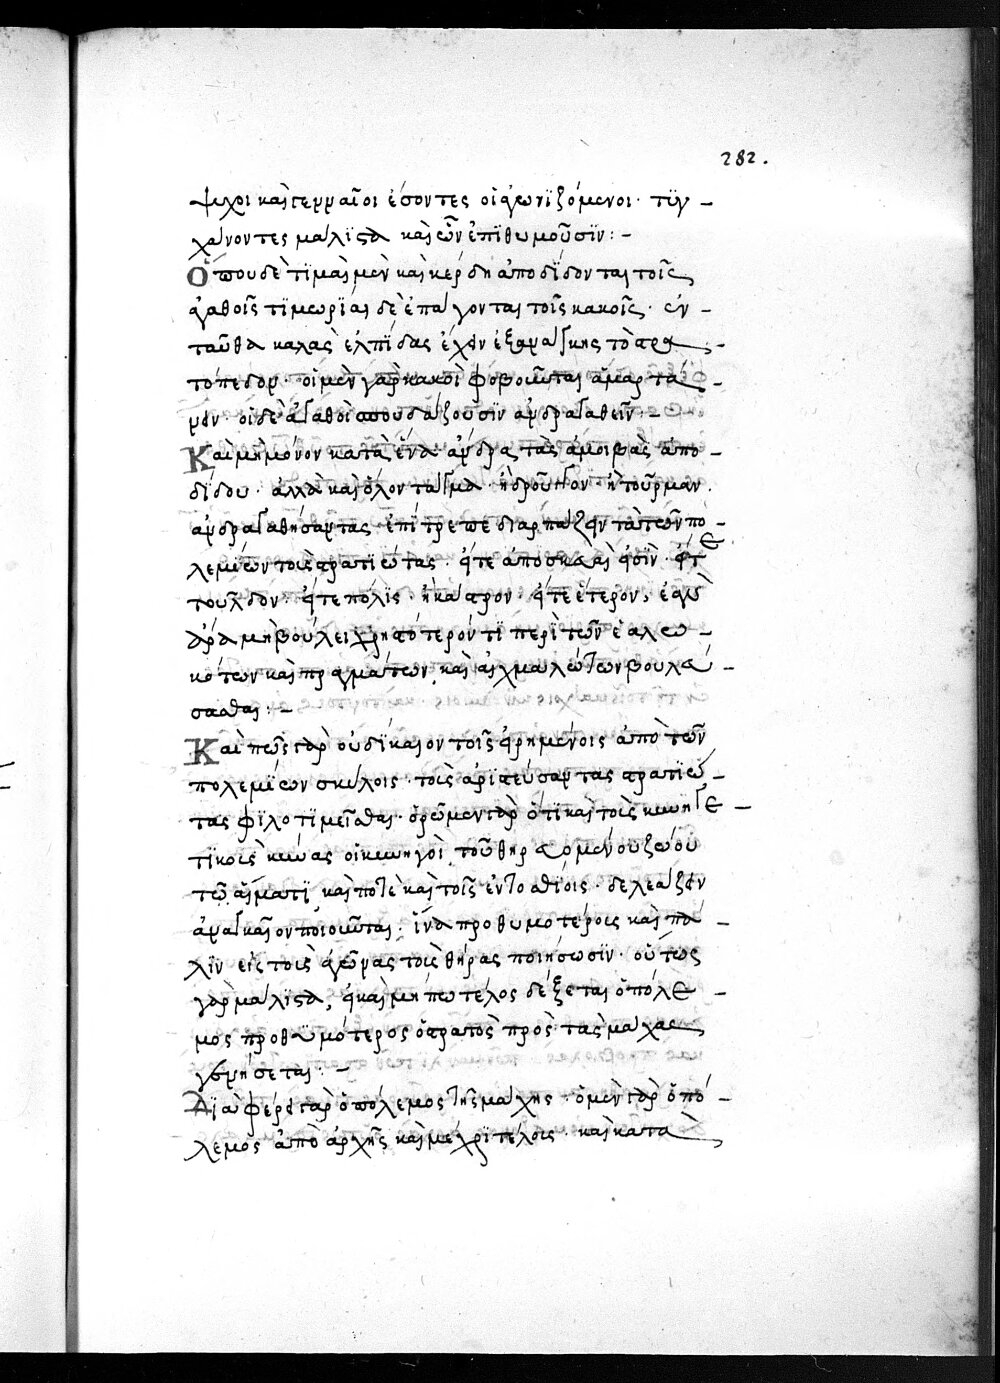 282.
ψυχοι καὶ γενναῖοι ἔσονται οἱ ἀγωνϊζόμενοι· τϋγ-
χάνοντες μάλϊστα καὶ ὧν ἐπϊθυμοῦσϊν:-
Ὅπου δὲ τϊμαὶ μὲν καὶ κέρδη ἀποδίδονται τοῖς
ἀγαθοῖς τϊμωρϊαι δὲ ἐπάγονται τοῖς κακοῖς· ἐν-
ταῦθα καλὰς ἐλπίδας ἔχειν ἐξ ἀνάγκης τὸ στρα-
τόπεδον· οἱ μὲν γὰρ κακοὶ φοβοῦνται ἁμαρτά-
νειν· οἱ δὲ ἀγαθοὶ σπουδάζουσϊν ἀνδραγαθεῖν:
Καὶ μὴ μόνον κατὰ ἕνα ἄνδρα τὰς ἀμοιβὰς ἀπο-
δίδου· ἀλλὰ καὶ ὅλον τάγμα· ἢ δροῦγγον· ἢ τοῦρμαν.
ἀνδραγαθήσαντας· ἐπίτρεπε διαρπάζειν τὰ τῶν πο-
λεμίων τοὺς στρατϊώτας· εἴτε ἀποσκευαὶ εἰσὶν· εἴτε
τοῦλδον· εἴτε πόλις· ἢ κάστρον· εἴτε ἕτερον, ἐὰν
ἄρα μὴ βούλει χρησιμότερόν τϊ περὶ τῶν ἑαλω-
κότων καὶ πραγμάτων, καὶ αἰχμαλώτων βουλεύ-
σασθαι:-
Καὶ πῶς γὰρ οὐ δίκαιον τοῖς εἰρημένοις ἀπὸ τῶν
πολεμϊων σκύλοις· τοὺς ἀριστεύσαντας στρατϊώ-
τας φϊλοτϊμεῖσθαι· ὁρῶμεν γὰρ ὅτι καὶ τοὺς κυνηγε-
τϊκοὺς κύνας οἱ κυνηγοὶ τοῦ θηρευομένου ζώου
τῷ αἵματϊ, καὶ ποτὲ καὶ τοῖς ἐντοσθίοις· δελεάζειν
ἀναγκαῖον ποιοῦνται· ἵνα προθυμοτέρους καὶ πά-
λϊν εἰς τοὺς ἀγῶνας τοὺς θήρας ποιήσωσϊν· οὕτως
γὰρ μάλϊστα, εἰ καὶ μήπω τέλος δέξεται ὁ πόλε-
μος προθϋμότερος ὁ στρατὸς πρὸς τὰς μάχας
γενήσεται:-
Δϊαφέρει γὰρ ὁ πόλεμος τῆς μάχης· ὁ μὲν γὰρ ὁ πό-
λεμος ἀπὸ ἀρχῆς καὶ μέχρϊ τέλους· καὶ κατὰ